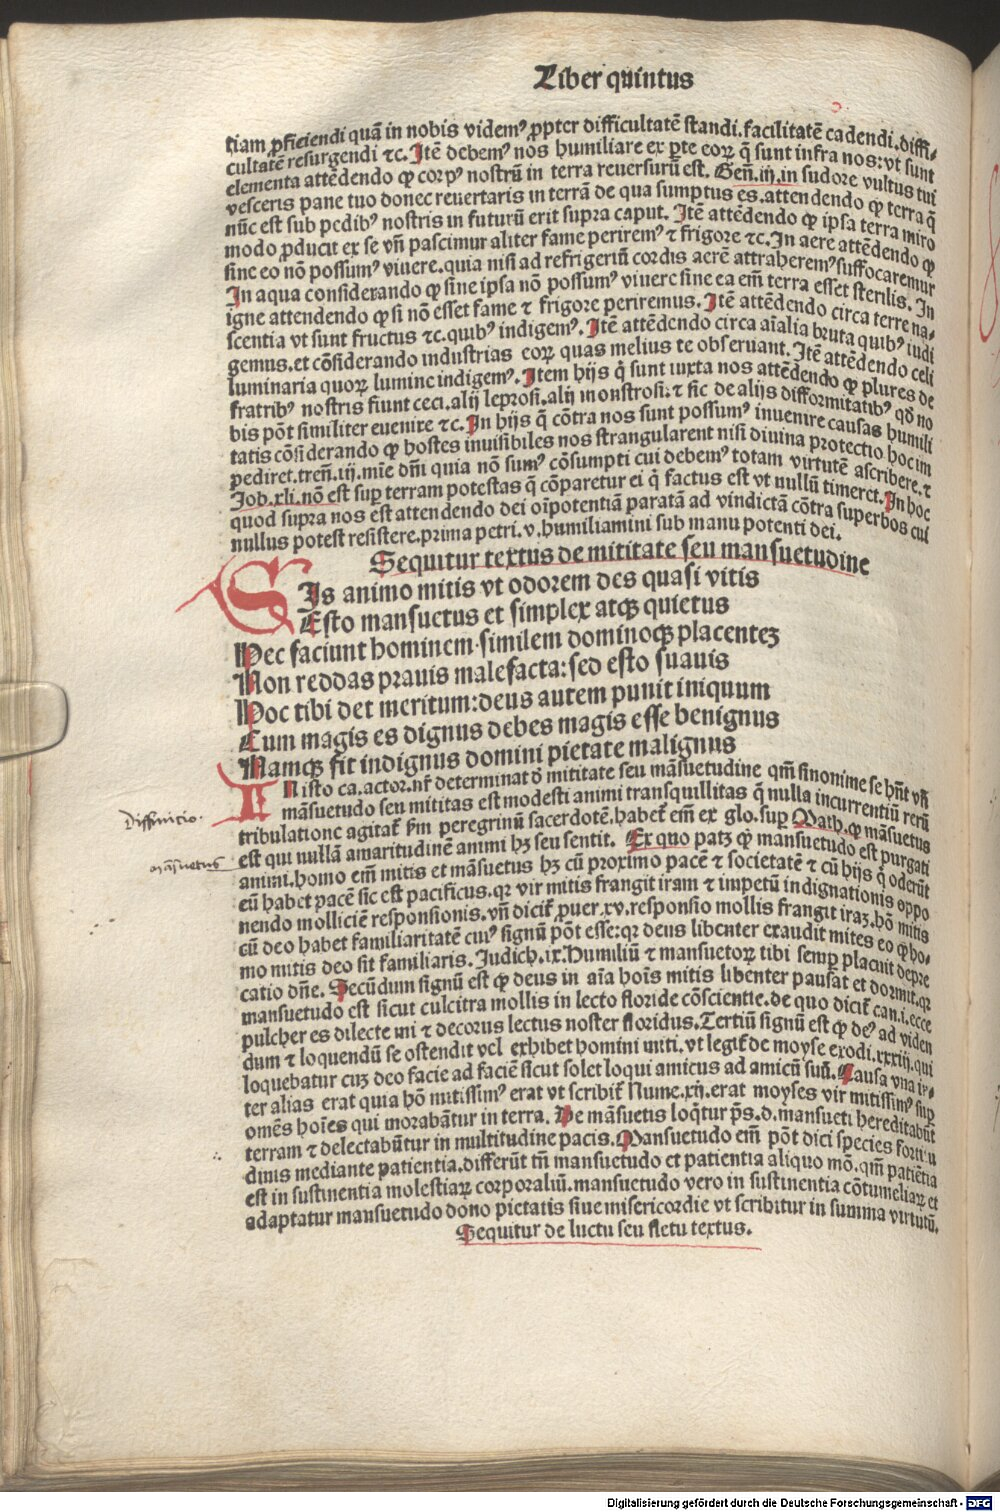 Liber quintus
tiam ꝓficiendi quã in nobis videmꝰ ꝓpter difficultatẽ standi.facilitatẽ cadendi.diffi-
cultatẽ resurgendi ⁊c. Itẽ debemꝰ nos humiliare ex ꝑte eoꝝ q̃ sunt infra nos: vt sunt
elementa attẽdendo ꝙ corpꝰ nostrũ in terra reuersurũ est. Geñ.iij.in sudore vultus tui
vesceris pane tuo donec reuertaris in terrã de qua sumptus es.attendendo ꝙ terra q̃
nũc est sub pedibꝰ nostris in futurũ erit supra caput. Itẽ attẽdendo ꝙ ipsa terra miro
modo ꝓducit ex se vñ pascimur aliter fame periremꝰ ⁊ frigore ⁊c. In aere attẽdendo ꝙ
sine eo nõ possumꝰ viuere.quia nisi ad refrigeriũ cordis aerẽ attraheremꝰ suffocaremur
In aqua considerando ꝙ sine ipsa nõ possumꝰ viuere sine ea em̃ terra esset sterilis. In
igne attendendo ꝙ si nõ esset fame ⁊ frigore periremus. Itẽ attẽdendo circa terre na-
scentia vt sunt fructus ⁊c.quibꝰ indigemꝰ. Itẽ attẽdendo circa aĩalia bruta quibꝰ iudi
gemus.et cõsiderando industrias eoꝝ quas melius te obseruant. Itẽ attẽdendo celi
luminaria quoꝝ lumine indigemꝰ. Item hijs q̃ sunt iuxta nos attẽdendo ꝙ plures de
fratribꝰ nostris fiunt ceci.alij leprosi.alij monstrosi: ⁊ sic de alijs difformitatibꝰ qd̃ no
bis põt similiter euenire ⁊c. In hijs q̃ cõtra nos sunt possumꝰ inuenire causas humili
tatis cõsiderando ꝙ hostes inuisibiles nos strangularent nisi diuina protectio hoc im
pediret.treñ.iij.mĩe dñi quia nõ sumꝰ cõsumpti cui debemꝰ totam virtutẽ ascribere. ⁊
Job.xli.nõ est suꝑ terram potestas q̃ cõparetur ei q̃ factus est vt nullũ timeret. In hoc
quod supra nos est attendendo dei oĩpotentiã paratã ad vindictã cõtra superbos cui
nullus potest resistere.prima petri.v.humiliamini sub manu potenti dei.
Sequitur textus de mititate seu mansuetudine
Sis animo mitis vt odorem des quasi vitis
Esto mansuetus et simplex atqꝫ quietus
Hec faciunt hominem similem dominoqꝫ placenteꝫ
Non reddas prauis malefacta: sed esto suauis
Hoc tibi det meritum: deus autem punit iniquum
Cum magis es dignus debes magis esse benignus
Namqꝫ fit indignus domini pietate malignus
IN isto ca.actor.nr̃ determinat đ mititate seu mãsuetudine qm̃ sinonime se hñt vñ
mãsuetudo seu mititas est modesti animi transquillitas q̃ nulla incurrentiũ rerũ
tribulatione agitat̃ ẜm peregrinũ sacerdotẽ.habet̃ em̃ ex glo.suꝑ Math.ꝙ mãsuetus
est qui nullã amaritudinẽ animi hꝫ seu sentit. Ex quo patꝫ ꝙ mansuetudo est purgati
animi.homo em̃ mitis et mãsuetus hꝫ cũ proximo pacẽ ⁊ societatẽ ⁊ cũ hijs q̃ oderũt
eũ habet pacẽ sic est pacificus.qꝛ vir mitis frangit iram ⁊ impetũ indignationis oppo
nendo molliciẽ responsionis.vñ dicit̃ ꝓuer.xv.responsio mollis frangit iraꝫ.hõ mitis
cũ deo habet familiaritatẽ cuiꝰ signũ põt esse: qꝛ deus libenter exaudit mites eo ꝙ ho-
mo mitis deo sit familiaris. Judich.ix.Humiliũ ⁊ mansuetoꝝ tibi semꝑ placuit depre
catio dñe. Secũdum signũ est ꝙ deus in aĩa hoĩs mitis libenter pausat et dormit.qꝛ
mansuetudo est sicut culcitra mollis in lecto floride cõscientie.de quo dicit̃ can.i.ecce
pulcher es dilecte mi ⁊ decorus lectus noster floridus. Tertiũ signũ est ꝙ deꝰ ad viden
dum ⁊ loquendũ se ostendit vel exhibet homini miti.vt legit̃ de moyse exodi.xxxiij.qui
loquebatur cuꝫ deo facie ad faciẽ sicut solet loqui amicus ad amicũ suũ. Causa vna in-
ter alias erat quia hõ mitissimꝰ erat vt scribit̃ Nume.xij.erat moyses vir mitissimꝰ suꝑ
omẽs hoĩes qui morabãtur in terra. De mãsuetis loq̃tur ps̃.d.mansueti hereditabũt
terram ⁊ delectabũtur in multitudine pacis. Mansuetudo em̃ põt dici species fortitu
dinis mediante patientia.differũt tñ mansuetudo et patientia aliquo mõ.qm̃ patiẽtia
est in sustinentia molestiaꝝ corporaliũ.mansuetudo vero in sustinentia cõtumeliaꝝ et
adaptatur mansuetudo dono pietatis siue misericordie vt scribitur in summa virtutũ.
Sequitur de luctu seu fletu textus.
Diffinicio.
mãsuetus
Digitalisierung gefördert durch die Deutsche Forschungsgemeinschaft - DFG